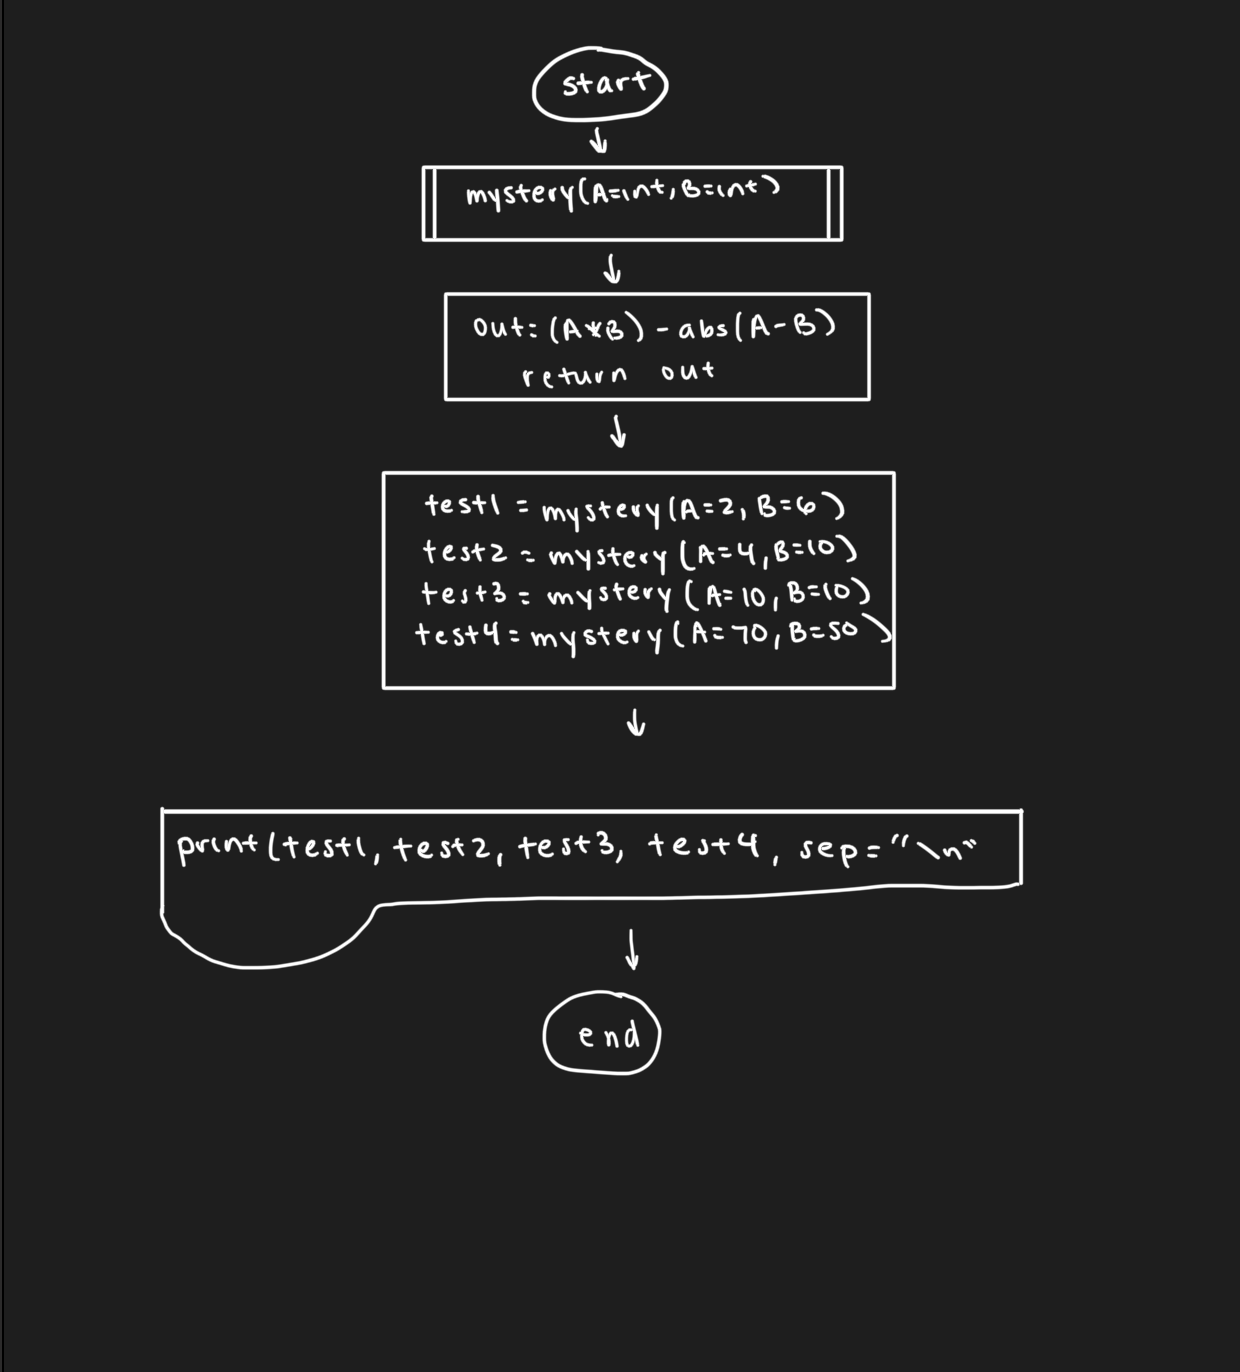 start
mystery(A=int, B=int)
out: (A*B) - abs(A-B)
return out
test1 = mystery(A=2, B=6)
test2 = mystery (A=4, B=10)
test3 = mystery (A=10, B=10)
test4 = mystery (A=70, B=50)
print(test1, test2, test3, test4, sep="\n"
end